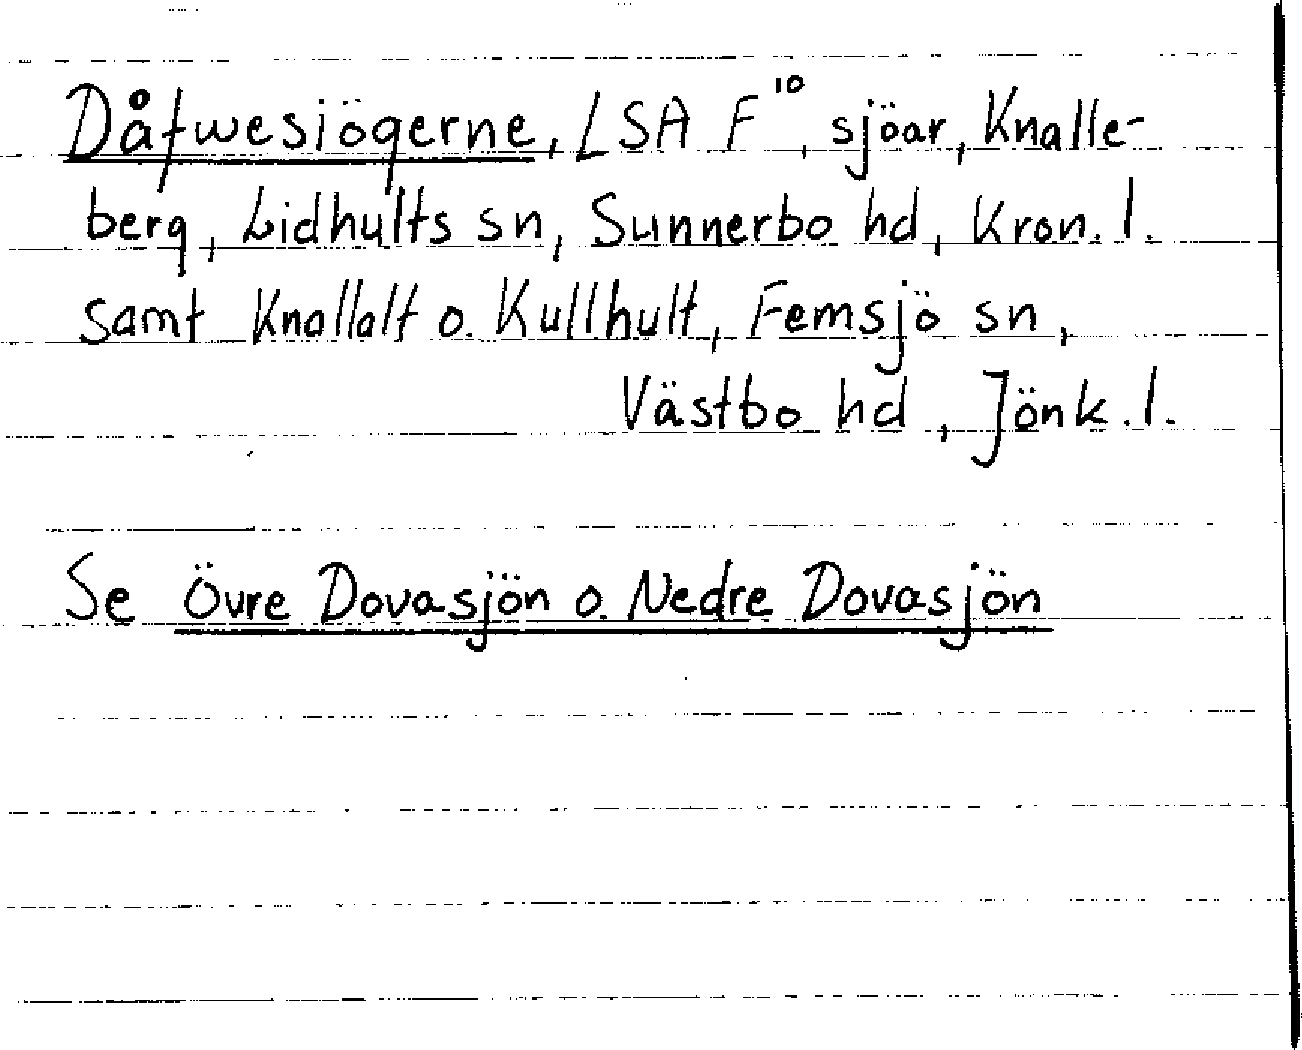 Dåfwesiögerne, LSA F¹⁰, sjöar, Knalle-
berg, Lidhults sn, Sunnerbo hd, Kron. l.
samt Knallalt o. Kullhult, Femsjö sn,
Västbo hd, Jönk. l.
Se Övre Dovasjön o. Nedre Dovasjön